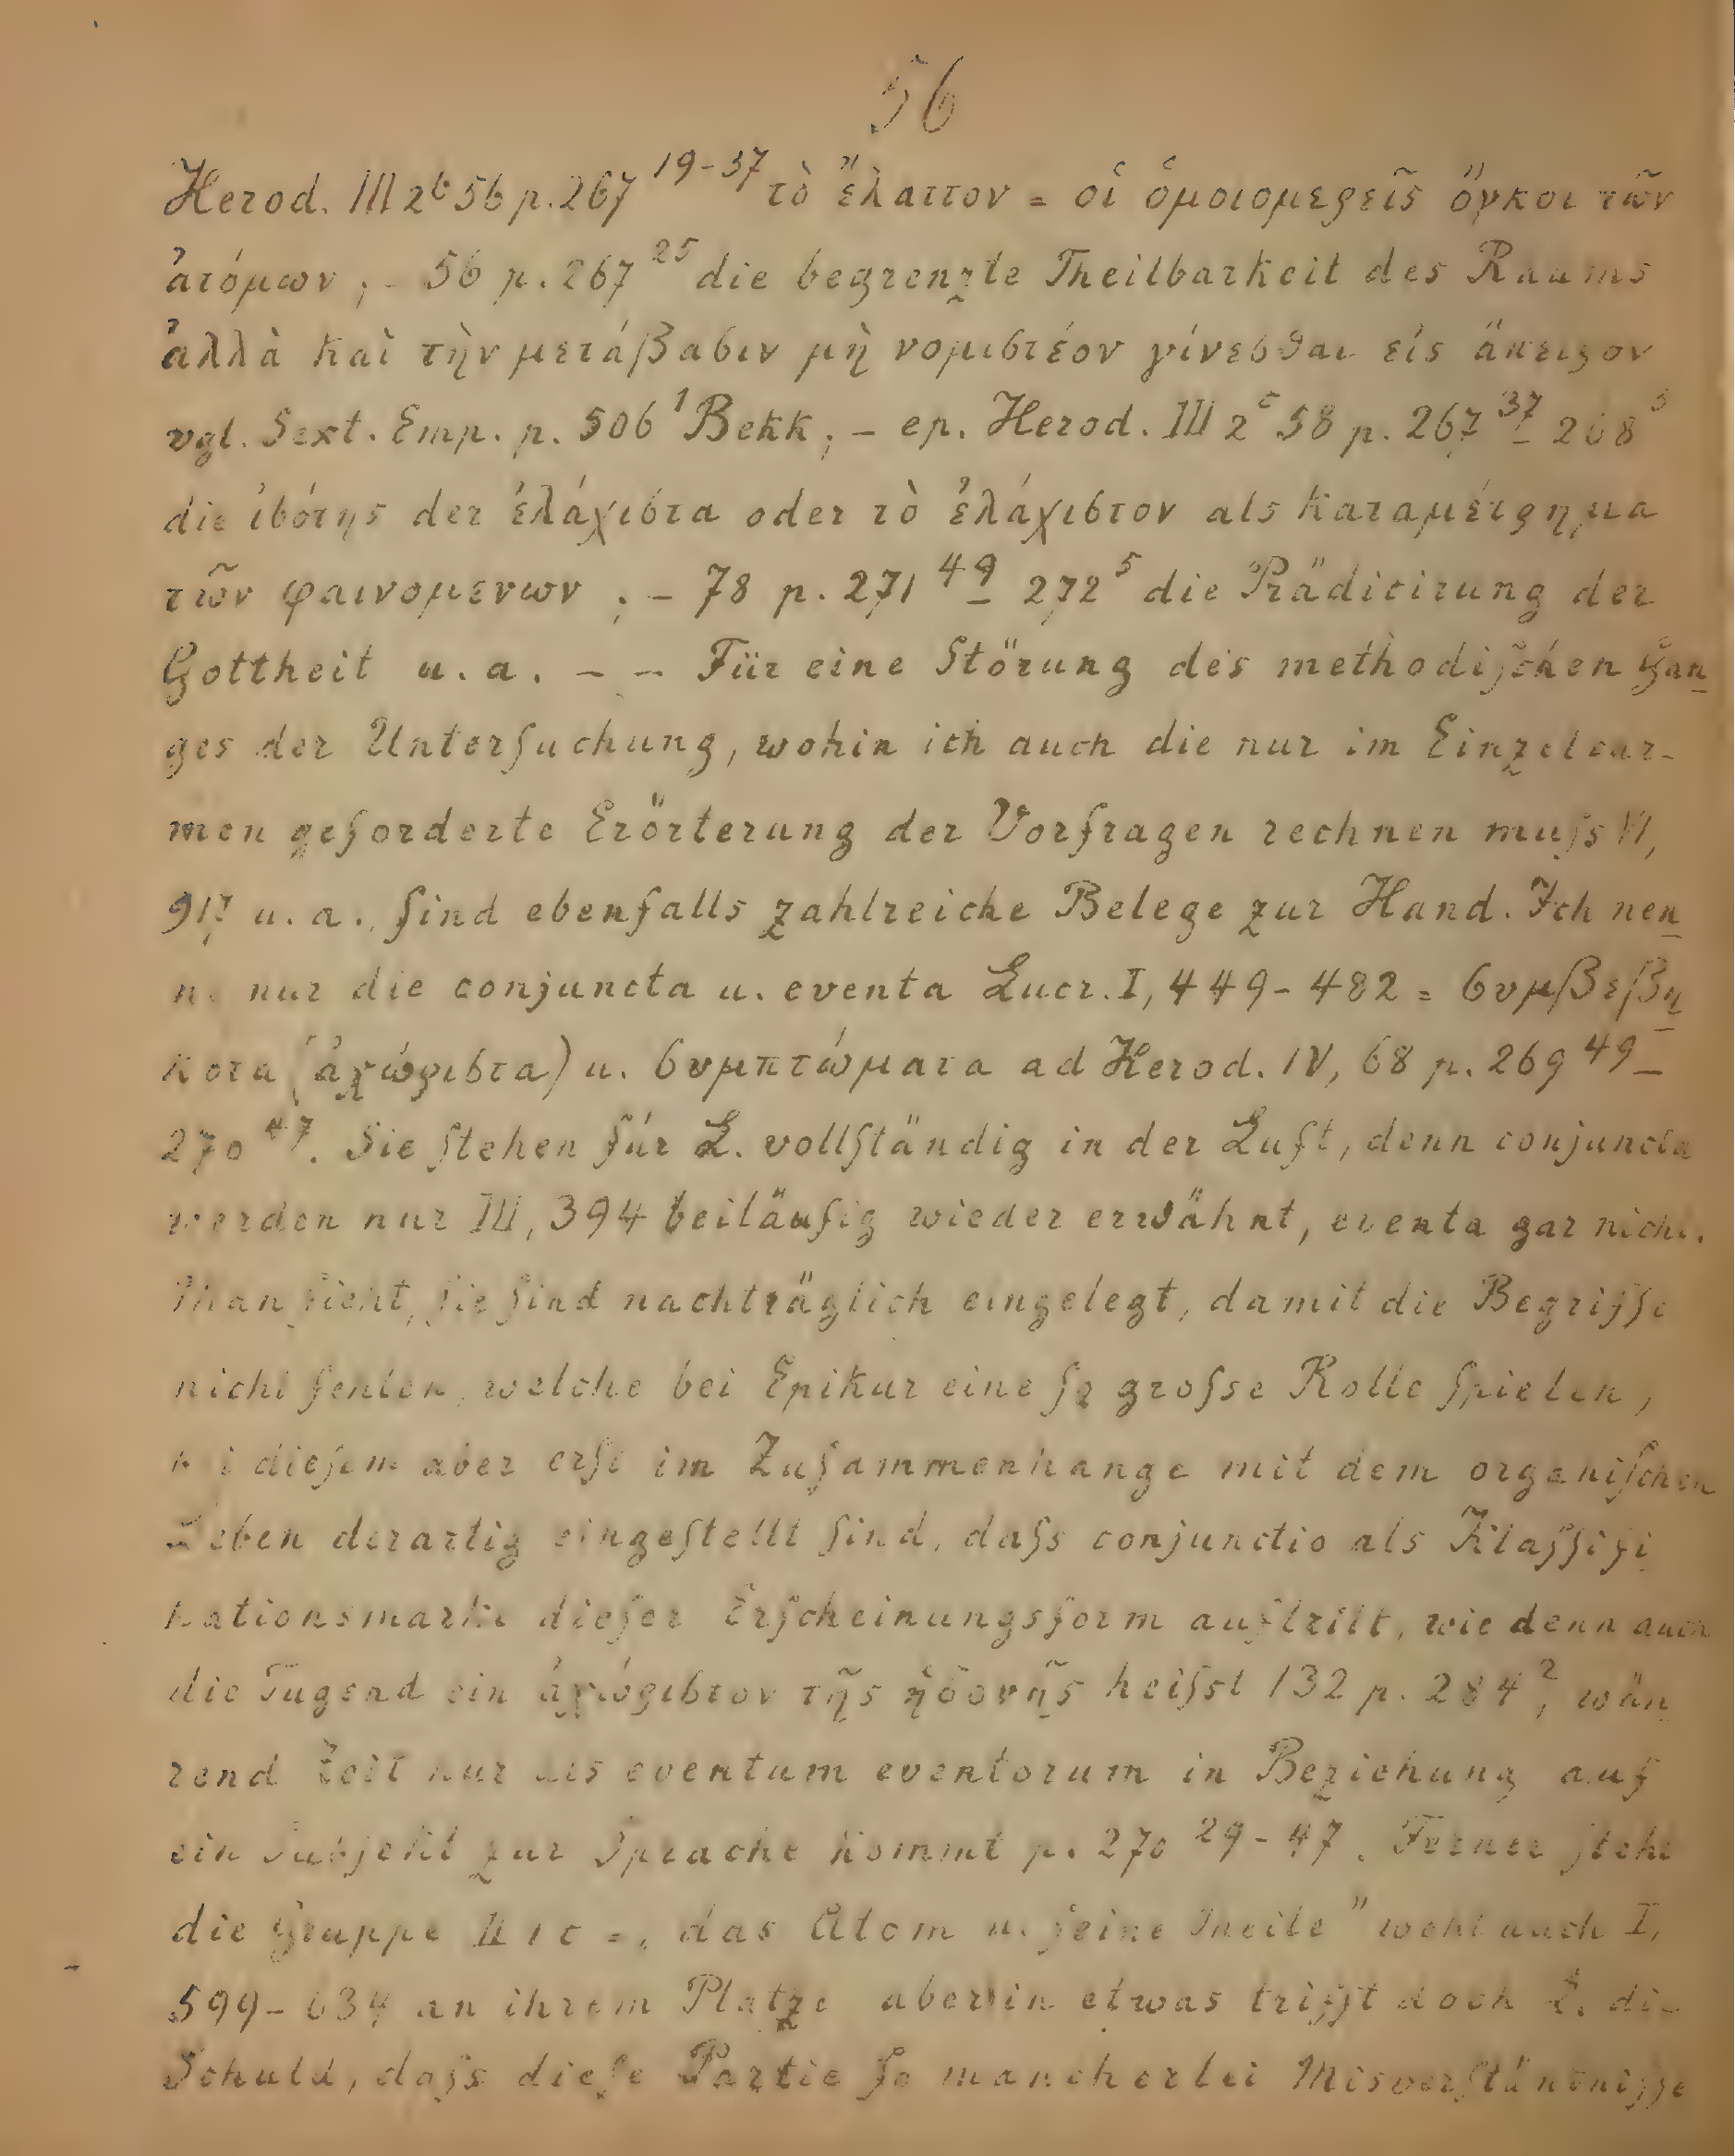 56
Herod. III 2b 56 p. 267 19-37 τὸ ἔλαττον = οἱ ὁμοιομερεῖς ὄγκοι τῶν
ἀτόμων ; - 56 p. 267 25 die begrenzte Theilbarkeit des Raums
ἀλλὰ καὶ τὴν μετάβασιν μὴ νομιστέον γίνεσθαι εἰς ἄπειρον
vgl. Sext. Emp. p. 506 1 Bekk; - ep. Herod. III 2c 58 p. 267 37 - 268 5
die ἰσότης der ἐλάχιστα oder τὸ ἐλάχιστον als καταμέτρημα
τῶν φαινομενων ; - 78 p. 271 49 - 272 5 die Prädicirung der
Gottheit u. a. - - Für eine Störung des methodiſchen Gan
ges der Unterſuchung, wohin ich auch die nur im Einzelcar-
men geforderte Erörterung der Vorfragen rechnen muſs VI,
917 u. a., ſind ebenfalls zahlreiche Belege zur Hand. Ich nen
ne nur die conjuncta u. eventa Lucr. I, 449-482 = συμβεβη
κοτα (ἀχώριστα) u. συμπτώματα ad Herod. IV, 68 p. 269 49 -
270 47. Sie ſtehen für L. vollſtändig in der Luft, denn conjuncta
werden nur III, 394 beiläufig wieder erwähnt, eventa gar nicht.
Man ſieht, ſie ſind nachträglich eingelegt, damit die Begriffe
nicht fehlen, welche bei Epikur eine ſo groſse Rolle ſpielen,
bei dieſem aber erſt im Zuſammenhange mit dem organiſchen
Leben derartig eingeſtellt ſind, daſs conjunctio als Klaſſifi
kationsmarke dieſer Erſcheinungsform auftritt, wie denn auch
die Tugend ein ἀχώριστον τῆς ἡδονῆς heiſst 132 p. 284 2, wäh
rend Zeit nur als eventum eventorum in Beziehung auf
ein Subjekt zur Sprache kommt p. 270 29-47. Ferner ſteht
die Gruppe II 1 c = „das Atom u. ſeine Theile" wohl auch I,
599-634 an ihrem Platze aber in etwas trifft doch L. die
Schuld, daſs dieſe Partie ſo mancherlei Misverſtändniſſe